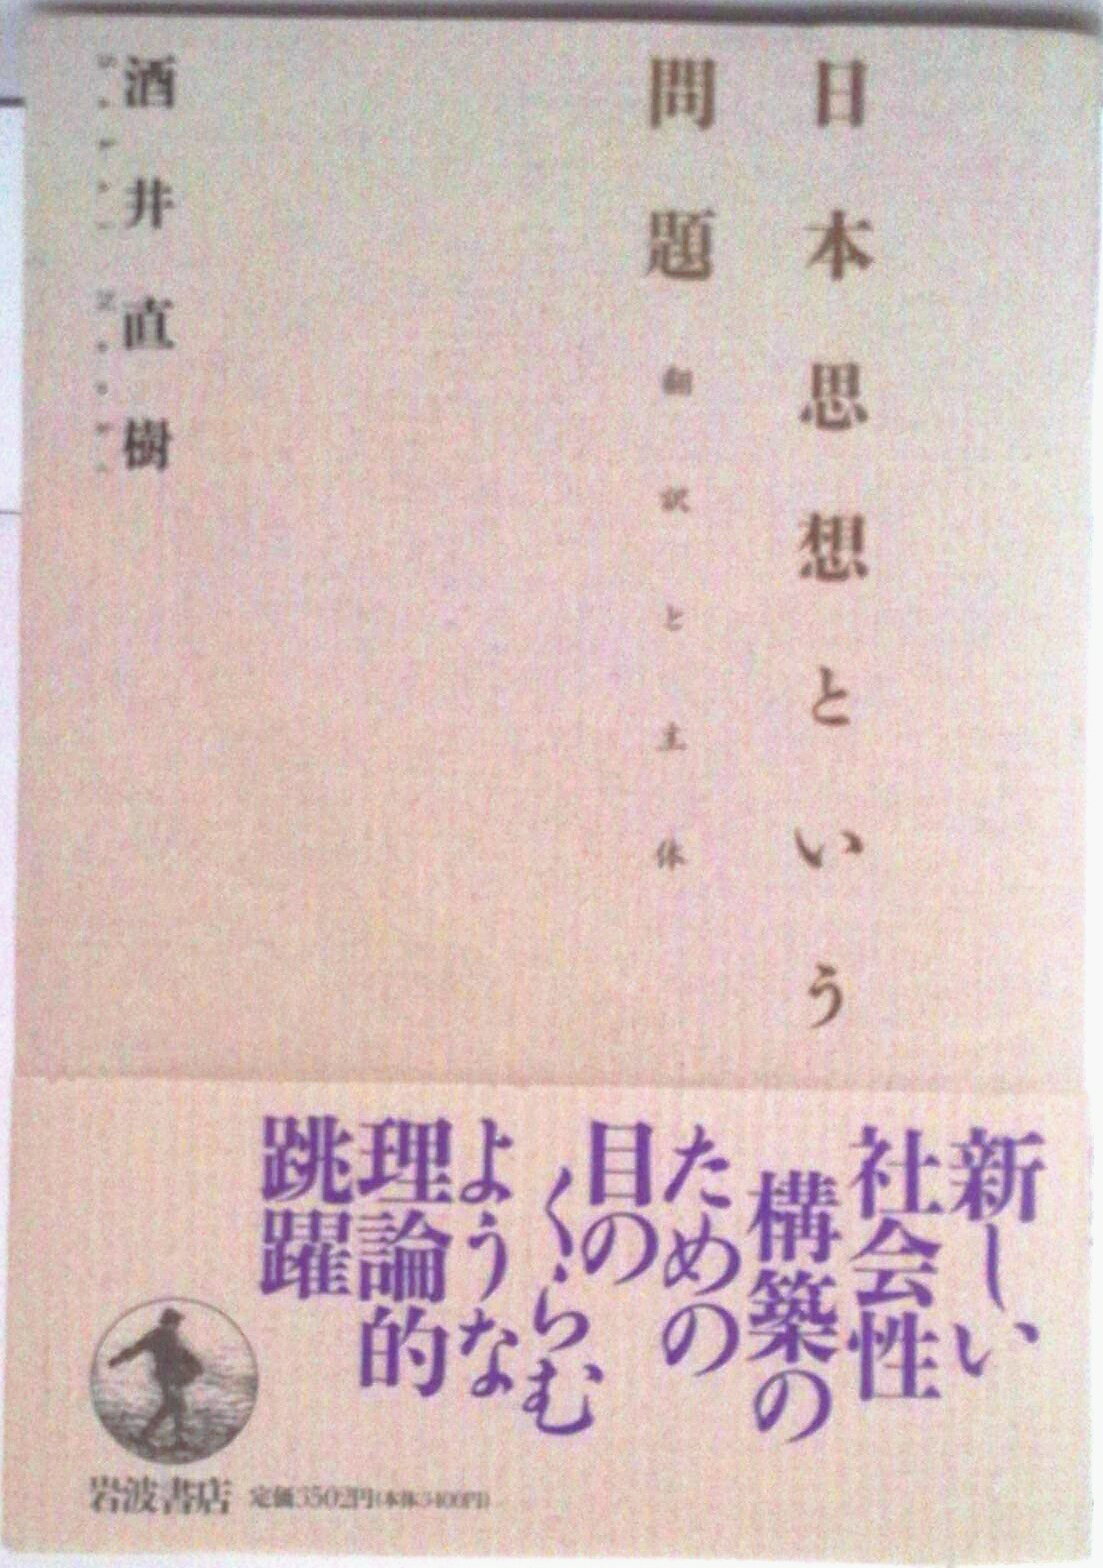 日本思想という
問題
翻訳と主体
酒井直樹
新しい
社会性
構築の
ための
目の
くらむ
ような
理論的
跳躍
岩波書店
定価3502円(本体3400円)